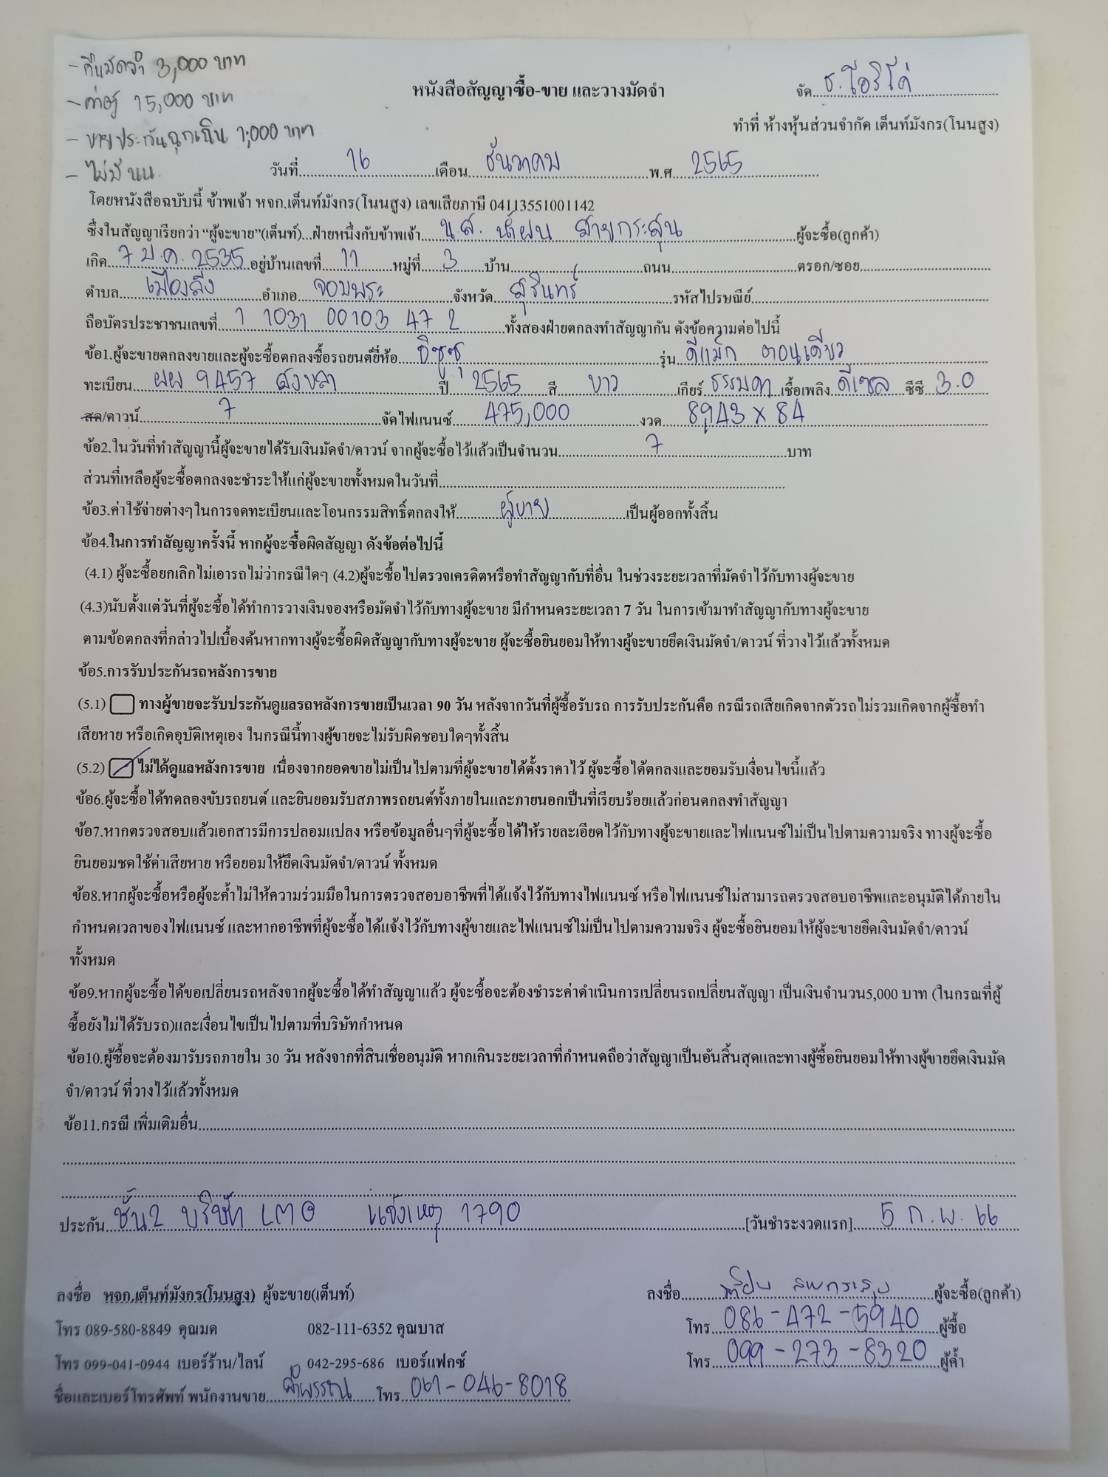 - คืนมัดจำ 3,000 บาท
- 15,000 บาท
- ประกันฉุกเฉิน 1,000 บาท
- ไม่มี นน
หนังสือสัญญาซื้อ-ขาย และวางมัดจำ
จัด ธ.ไอซีบีซี
ทำที่ ห้างหุ้นส่วนจำกัด เต็นท์มังกร(โนนสูง)
วันที่ 16 เดือน ธันวาคม พ.ศ. 2565
โดยหนังสือฉบับนี้ ข้าพเจ้า หจก.เต็นท์มังกร(โนนสูง) เลขเสียภาษี 04113551001142
ซึ่งในสัญญาเรียกว่า "ผู้จะขาย"(เต็นท์)...ฝ่ายหนึ่งกับข้าพเจ้า น.ส. น้ำฝน สายกระสุน ผู้จะซื้อ(ลูกค้า)
เกิด 7 2535 อยู่บ้านเลขที่ 11 หมู่ที่ 3 บ้าน ถนน ตรอก/ซอย
ตำบล เมืองลีง อำเภอ จอมพระ จังหวัด สุรินทร์ รหัสไปรษณีย์
ถือบัตรประชาชนเลขที่ 1 1031 00103 47 2 ทั้งสองฝ่ายตกลงทำสัญญากัน ดังข้อความต่อไปนี้
ข้อ1.ผู้จะขายตกลงขายและผู้จะซื้อตกลงซื้อรถยนต์ยี่ห้อ อีซูซุ รุ่น ดีแม็ก ตอนเดียว
ทะเบียน ผผ 9457 สงขลา ปี 2565 สี ขาว เกียร์ ธรรมดา เชื้อเพลิง ดีเซล ซีซี 3.0
สด/ดาวน์ 7 จัดไฟแนนซ์ 475,000 งวด 8,943 x 84
ข้อ2.ในวันที่ทำสัญญานี้ผู้จะขายได้รับเงินมัดจำ/ดาวน์ จากผู้จะซื้อไว้แล้วเป็นจำนวน 7 บาท
ส่วนที่เหลือผู้จะซื้อตกลงจะชำระให้แก่ผู้จะขายทั้งหมดในวันที่
ข้อ3.ค่าใช้จ่ายต่างๆในการจดทะเบียนและโอนกรรมสิทธิ์ตกลงให้ ผู้ขาย เป็นผู้ออกทั้งสิ้น
ข้อ4.ในการทำสัญญาครั้งนี้ หากผู้จะซื้อผิดสัญญา ดังข้อต่อไปนี้
(4.1) ผู้จะซื้อยกเลิกไม่เอารถไม่ว่ากรณีใดๆ (4.2)ผู้จะซื้อไปตรวจเครดิตหรือทำสัญญากับที่อื่น ในช่วงระยะเวลาที่มัดจำไว้กับทางผู้จะขาย
(4.3)นับตั้งแต่วันที่ผู้จะซื้อได้ทำการวางเงินจองหรือมัดจำไว้กับทางผู้จะขาย มีกำหนดระยะเวลา 7 วัน ในการเข้ามาทำสัญญากับทางผู้จะขาย
ตามข้อตกลงที่กล่าวไปเบื้องต้นหากทางผู้จะซื้อผิดสัญญากับทางผู้จะขาย ผู้จะซื้อยินยอมให้ทางผู้จะขายยึดเงินมัดจำ/ดาวน์ ที่วางไว้แล้วทั้งหมด
ข้อ5.การรับประกันรถหลังการขาย
(5.1) ทางผู้ขายจะรับประกันดูแลรถหลังการขายเป็นเวลา 90 วัน หลังจากวันที่ผู้ซื้อรับรถ การรับประกันคือ กรณีรถเสียเกิดจากตัวรถไม่รวมเกิดจากผู้ซื้อทำ
เสียหาย หรือเกิดอุบัติเหตุเอง ในกรณีนี้ทางผู้ขายจะไม่รับผิดชอบใดๆทั้งสิ้น
(5.2) ไม่ได้ดูแลหลังการขาย เนื่องจากยอดขายไม่เป็นไปตามที่ผู้จะขายได้ตั้งราคาไว้ ผู้จะซื้อได้ตกลงและยอมรับเงื่อนไขนี้แล้ว
ข้อ6.ผู้จะซื้อได้ทดลองขับรถยนต์ และยินยอมรับสภาพรถยนต์ทั้งภายในและภายนอกเป็นที่เรียบร้อยแล้วก่อนตกลงทำสัญญา
ข้อ7.หากตรวจสอบแล้วเอกสารมีการปลอมแปลง หรือข้อมูลอื่นๆที่ผู้จะซื้อได้ให้รายละเอียดไว้กับทางผู้จะขายและไฟแนนซ์ไม่เป็นไปตามความจริง ทางผู้จะซื้อ
ยินยอมชดใช้ค่าเสียหาย หรือยอมให้ยึดเงินมัดจำ/ดาวน์ ทั้งหมด
ข้อ8.หากผู้จะซื้อหรือผู้จะค้ำไม่ให้ความร่วมมือในการตรวจสอบอาชีพที่ได้แจ้งไว้กับทางไฟแนนซ์ หรือไฟแนนซ์ไม่สามารถตรวจสอบอาชีพและอนุมัติได้ภายใน
กำหนดเวลาของไฟแนนซ์ และหากอาชีพที่ผู้จะซื้อได้แจ้งไว้กับทางผู้ขายและไฟแนนซ์ไม่เป็นไปตามความจริง ผู้จะซื้อยินยอมให้ผู้จะขายยึดเงินมัดจำ/ดาวน์
ทั้งหมด
ข้อ9.หากผู้จะซื้อได้ขอเปลี่ยนรถหลังจากผู้จะซื้อได้ทำสัญญาแล้ว ผู้จะซื้อจะต้องชำระค่าดำเนินการเปลี่ยนรถเปลี่ยนสัญญา เป็นเงินจำนวน5,000 บาท (ในกรณที่ผู้
ซื้อยังไม่ได้รับรถ)และเงื่อนไขเป็นไปตามที่บริษัทกำหนด
ข้อ10.ผู้ซื้อจะต้องมารับรถภายใน 30 วัน หลังจากที่สินเชื่ออนุมัติ หากเกินระยะเวลาที่กำหนดถือว่าสัญญาเป็นอันสิ้นสุดและทางผู้ซื้อยินยอมให้ทางผู้ขายยึดเงินมัด
จำ/ดาวน์ ที่วางไว้แล้วทั้งหมด
ข้อ11.กรณี เพิ่มเติมอื่น
ประกัน ชั้น2 บริษัท LMG แจ้งเหตุ 1790 [วันชำระงวดแรก] 5 ก.พ. 66
ลงชื่อ หจก.เต็นท์มังกร(โนนสูง) ผู้จะขาย(เต็นท์) ลงชื่อ ผู้จะซื้อ(ลูกค้า)
โทร 089-580-8849 คุณมด 082-111-6352 คุณบาส โทร. 086-472-5940 ผู้ซื้อ
โทร 099-041-0944 เบอร์ร้าน/ไลน์ 042-295-686 เบอร์แฟกซ์ โทร. 099-273-8320 ผู้ค้ำ
ชื่อและเบอร์โทรศัพท์ พนักงานขาย โทร. 061-046-8018